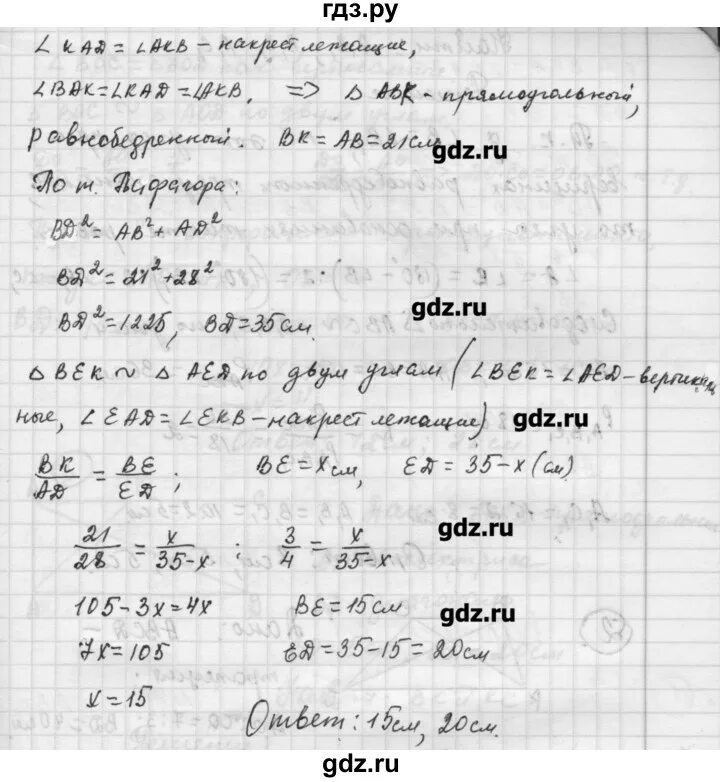 гдз.ру
∠KAD = ∠AKB – накрест лежащие,
∠BAK = ∠KAD = ∠AKB, => △ ABK - прямоугольный,
равнобедренный. BK = AB = 21см
gdz.ru
По т. Пифагора:
BD² = AB² + AD²
BD² = 21² + 28²
gdz.ru
BD² = 1225, BD = 35 см.
△ BEK ~ △ AED по двум углам (∠BEK = ∠AED – вертикаль
ные, ∠EAD = ∠EKB – накрест лежащие)
gdz.ru
BK/AD = BE/ED; BE = x см, ED = 35-x (см).
gdz.ru
21/28 = x/35-x; 3/4 = x/35-x
105-3x = 4x BE = 15см
gdz.ru
7x = 105 ED = 35-15 = 20см
x = 15
Ответ: 15см, 20см.
gdz.ru